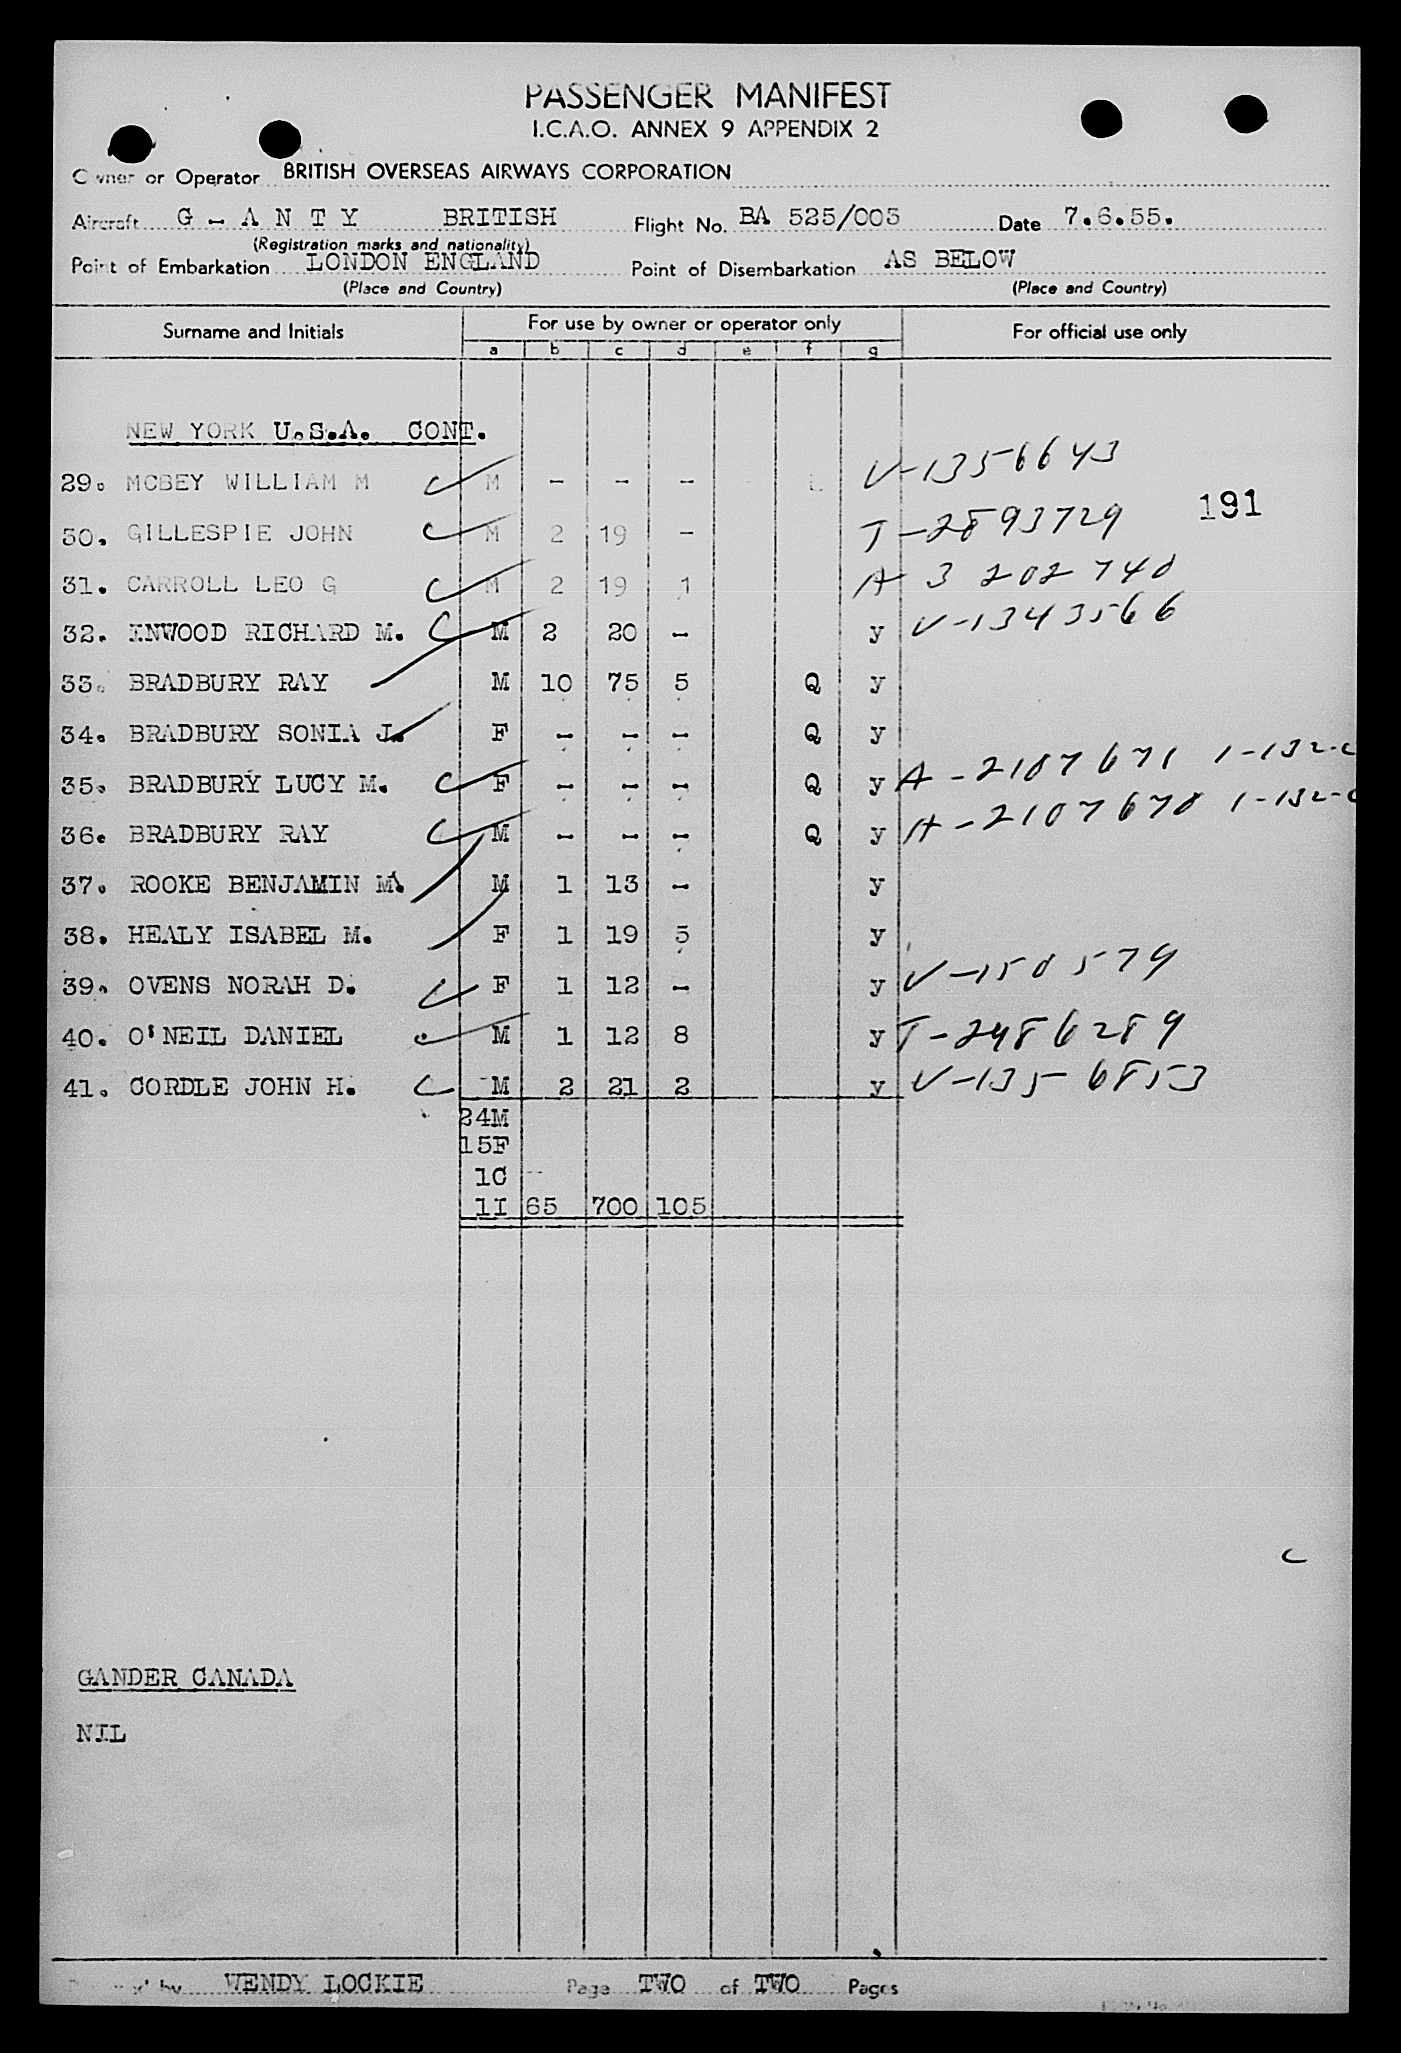 PASSENGER MANIFEST
I.C.A.O. ANNEX 9 APPENDIX 2
Owner or Operator BRITISH OVERSEAS AIRWAYS CORPORATION
Aircraft G - A N T Y BRITISH Flight No. BA 525/005 Date 7.6.55.
(Registration marks and nationality)
Point of Embarkation LONDON ENGLAND Point of Disembarkation AS BELOW
(Place and Country) (Place and Country)
Surname and Initials For use by owner or operator only For official use only
a b c d e f g
NEW YORK U.S.A. CONT.
29. MCBEY WILLIAM M C M - - - V-1356643
191
30. GILLESPIE JOHN C M 2 19 - T-2893729
31. CARROLL LEO G C M 2 19 1 A 3 202 740
32. ENWOOD RICHARD M. C M 2 20 - y V-1343566
33. BRADBURY RAY M 10 75 5 Q y
34. BRADBURY SONIA J. F - - - Q y
35. BRADBURY LUCY M. C F - - - Q y A-2107671 1-132-C
36. BRADBURY RAY C M - - - Q y A-2107670 1-132-C
37. ROOKE BENJAMIN M. M 1 13 - y
38. HEALY ISABEL M. F 1 19 5 y
39. OVENS NORAH D. C F 1 12 - y V-150579
40. O'NEIL DANIEL M 1 12 8 y T-2486289
41. CORDLE JOHN H. C M 2 21 2 y V-1356853
24M
15F
1C
1I 65 700 105
C
GANDER CANADA
NIL
by WENDY LOCKIE Page TWO of TWO Pages